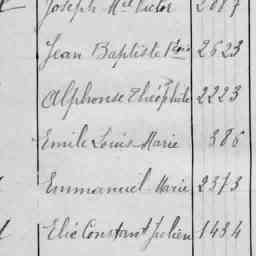 Joseph Mel Victor 2087
Jean Baptiste 2623
Alphonse Théophile 2223
Emile Louis Marie 386
Emmanuel Marie 2373
Elie Constant Julien 1434